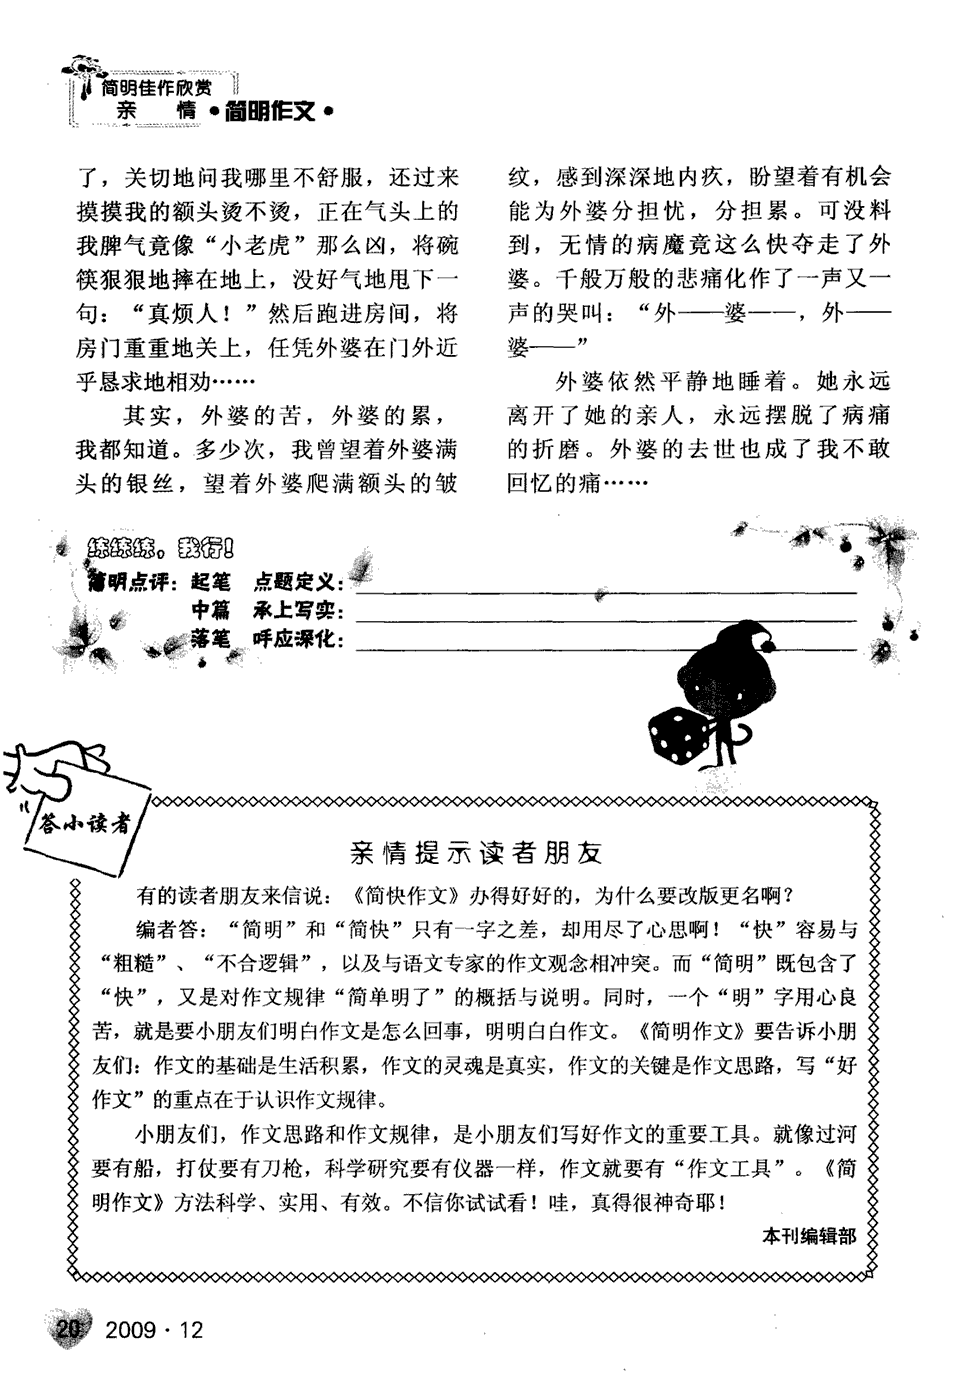 简明佳作欣赏
亲 情·简明作文·
了，关切地问我哪里不舒服，还过来
摸摸我的额头烫不烫，正在气头上的
我脾气竟像“小老虎”那么凶，将碗
筷狠狠地摔在地上，没好气地甩下一
句：“真烦人！”然后跑进房间，将
房门重重地关上，任凭外婆在门外近
乎恳求地相劝……
其实，外婆的苦，外婆的累，
我都知道。多少次，我曾望着外婆满
头的银丝，望着外婆爬满额头的皱
纹，感到深深地内疚，盼望着有机会
能为外婆分担忧，分担累。可没料
到，无情的病魔竟这么快夺走了外
婆。千般万般的悲痛化作了一声又一
声的哭叫：“外——婆——，外——
婆——”
外婆依然平静地睡着。她永远
离开了她的亲人，永远摆脱了病痛
的折磨。外婆的去世也成了我不敢
回忆的痛……
练练练，我行！
简明点评：起笔 点题定义：
中篇 承上写实：
落笔 呼应深化：
答小读者
亲情提示读者朋友
有的读者朋友来信说：《简快作文》办得好好的，为什么要改版更名啊？
编者答：“简明”和“简快”只有一字之差，却用尽了心思啊！“快”容易与
“粗糙”、“不合逻辑”，以及与语文专家的作文观念相冲突。而“简明”既包含了
“快”，又是对作文规律“简单明了”的概括与说明。同时，一个“明”字用心良
苦，就是要小朋友们明白作文是怎么回事，明明白白作文。《简明作文》要告诉小朋
友们：作文的基础是生活积累，作文的灵魂是真实，作文的关键是作文思路，写“好
作文”的重点在于认识作文规律。
小朋友们，作文思路和作文规律，是小朋友们写好作文的重要工具。就像过河
要有船，打仗要有刀枪，科学研究要有仪器一样，作文就要有“作文工具”。《简
明作文》方法科学、实用、有效。不信你试试看！哇，真得很神奇耶！
本刊编辑部
20 2009·12